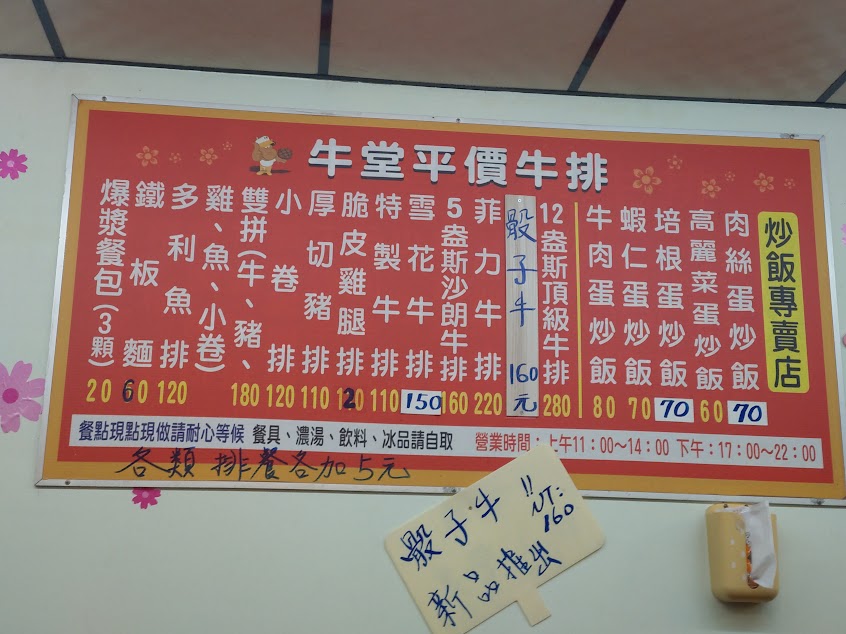 牛堂平價牛排
炒飯專賣店
肉絲蛋炒飯 70
高麗菜蛋炒飯 60
培根蛋炒飯 70
蝦仁蛋炒飯 70
牛肉蛋炒飯 80
12盎斯頂級牛排 280
骰子牛 160元
菲力牛排 220
5盎斯沙朗牛排 160
雪花牛排 150
特製牛排 110
脆皮雞腿排 120
厚切豬排 110
小卷排 120
雙拼(牛、豬、 180
雞、魚、小卷)
多利魚排 120
鐵板麵 60
爆漿餐包(3顆) 20
餐點現點現做請耐心等候 餐具、濃湯、飲料、冰品請自取 營業時間：上午11：00～14：00 下午：17：00～22：00
各類排餐各加5元
骰子牛!! NT:
160
新品推出